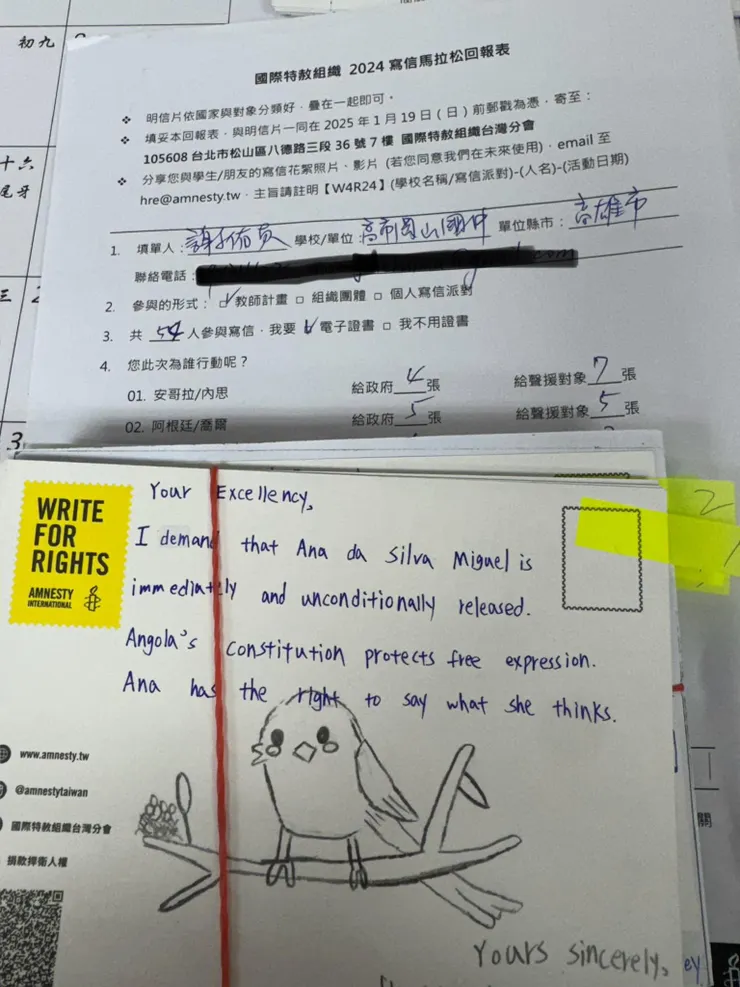 初九
十六
尾牙
三 2
3
國際特赦組織 2024 寫信馬拉松回報表
❖ 明信片依國家與對象分類好，疊在一起即可。
❖ 填妥本回報表，與明信片一同在 2025 年 1 月 19 日（日）前郵戳為憑，寄至：
105608 台北市松山區八德路三段 36 號 7 樓 國際特赦組織台灣分會
❖ 分享您與學生/朋友的寫信花絮照片、影片 (若您同意我們在未來使用)，email 至
hre@amnesty.tw，主旨請註明【W4R24】(學校名稱/寫信派對)-(人名)-(活動日期)
1. 填單人： 學校/單位：高市岡山國中 單位縣市：高雄市
聯絡電話： com
2. 參與的形式：☑教師計畫 □ 組織團體 □ 個人寫信派對
3. 共 54 人參與寫信，我要 ☑ 電子證書 □ 我不用證書
4. 您此次為誰行動呢？
01. 安哥拉/內思 給政府 4 張 給聲援對象 7 張
02. 阿根廷/喬爾 給政府 5 張 給聲援對象 5 張
WRITE
FOR
RIGHTS
AMNESTY
INTERNATIONAL
Your Excellency,
I demand that Ana da Silva Miguel is
immediately and unconditionally released.
Angola's constitution protects free expression.
Ana has the right to say what she thinks.
2
www.amnesty.tw
@amnestytaiwan
國際特赦組織台灣分會
捐款捍衛人權
關
Yours sincerely,
ey